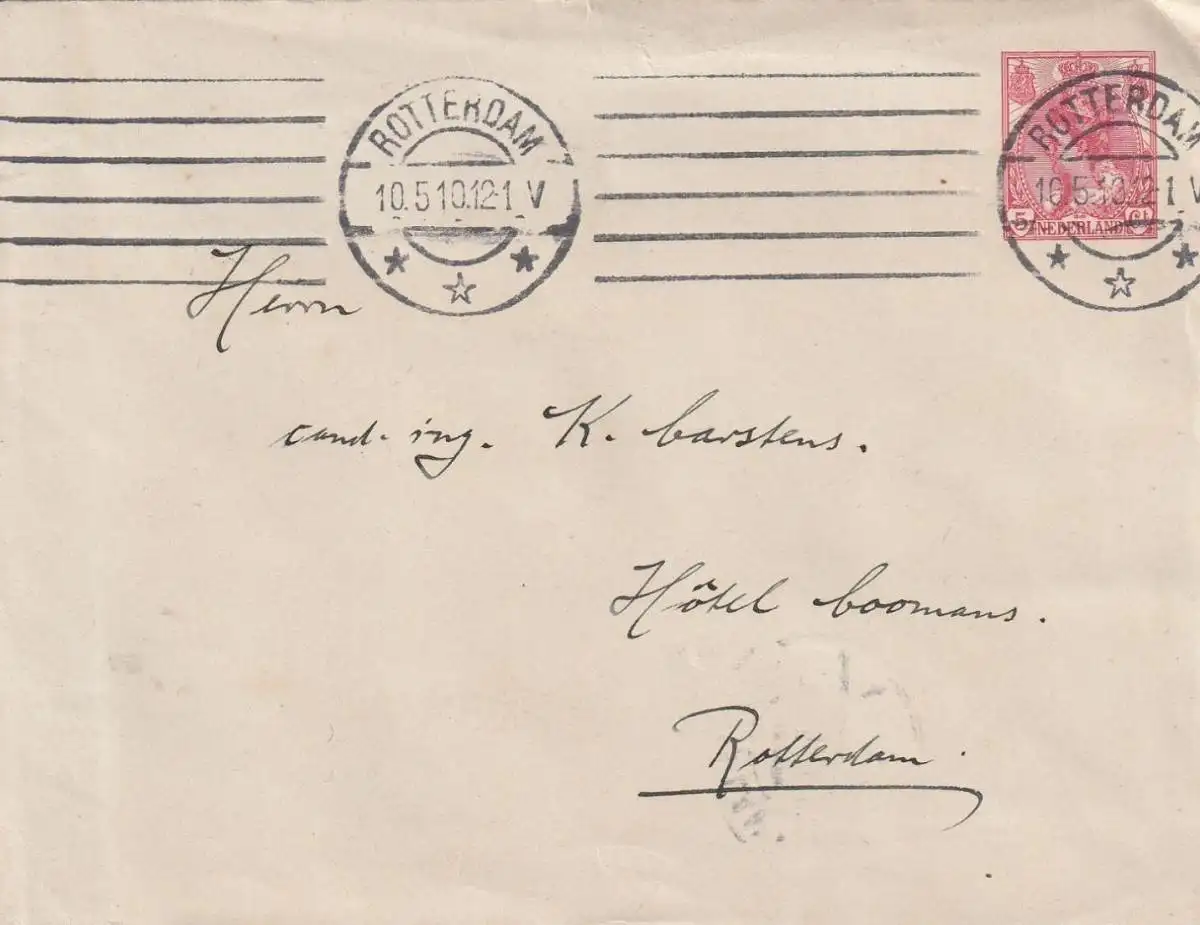 ROTTERDAM
10.5 10.12-1 V
ROTTERDAM
10.5 10.12-1 V
5 Ct
NEDERLAND
Herrn
cand. ing. K. Carstens.
Hôtel Coomans.
Rotterdam.